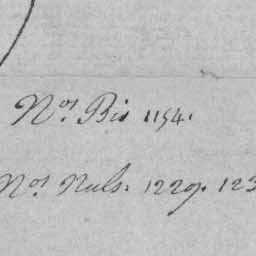 Nos. Bis 1154.
Nos. Nuls: 1229. 123